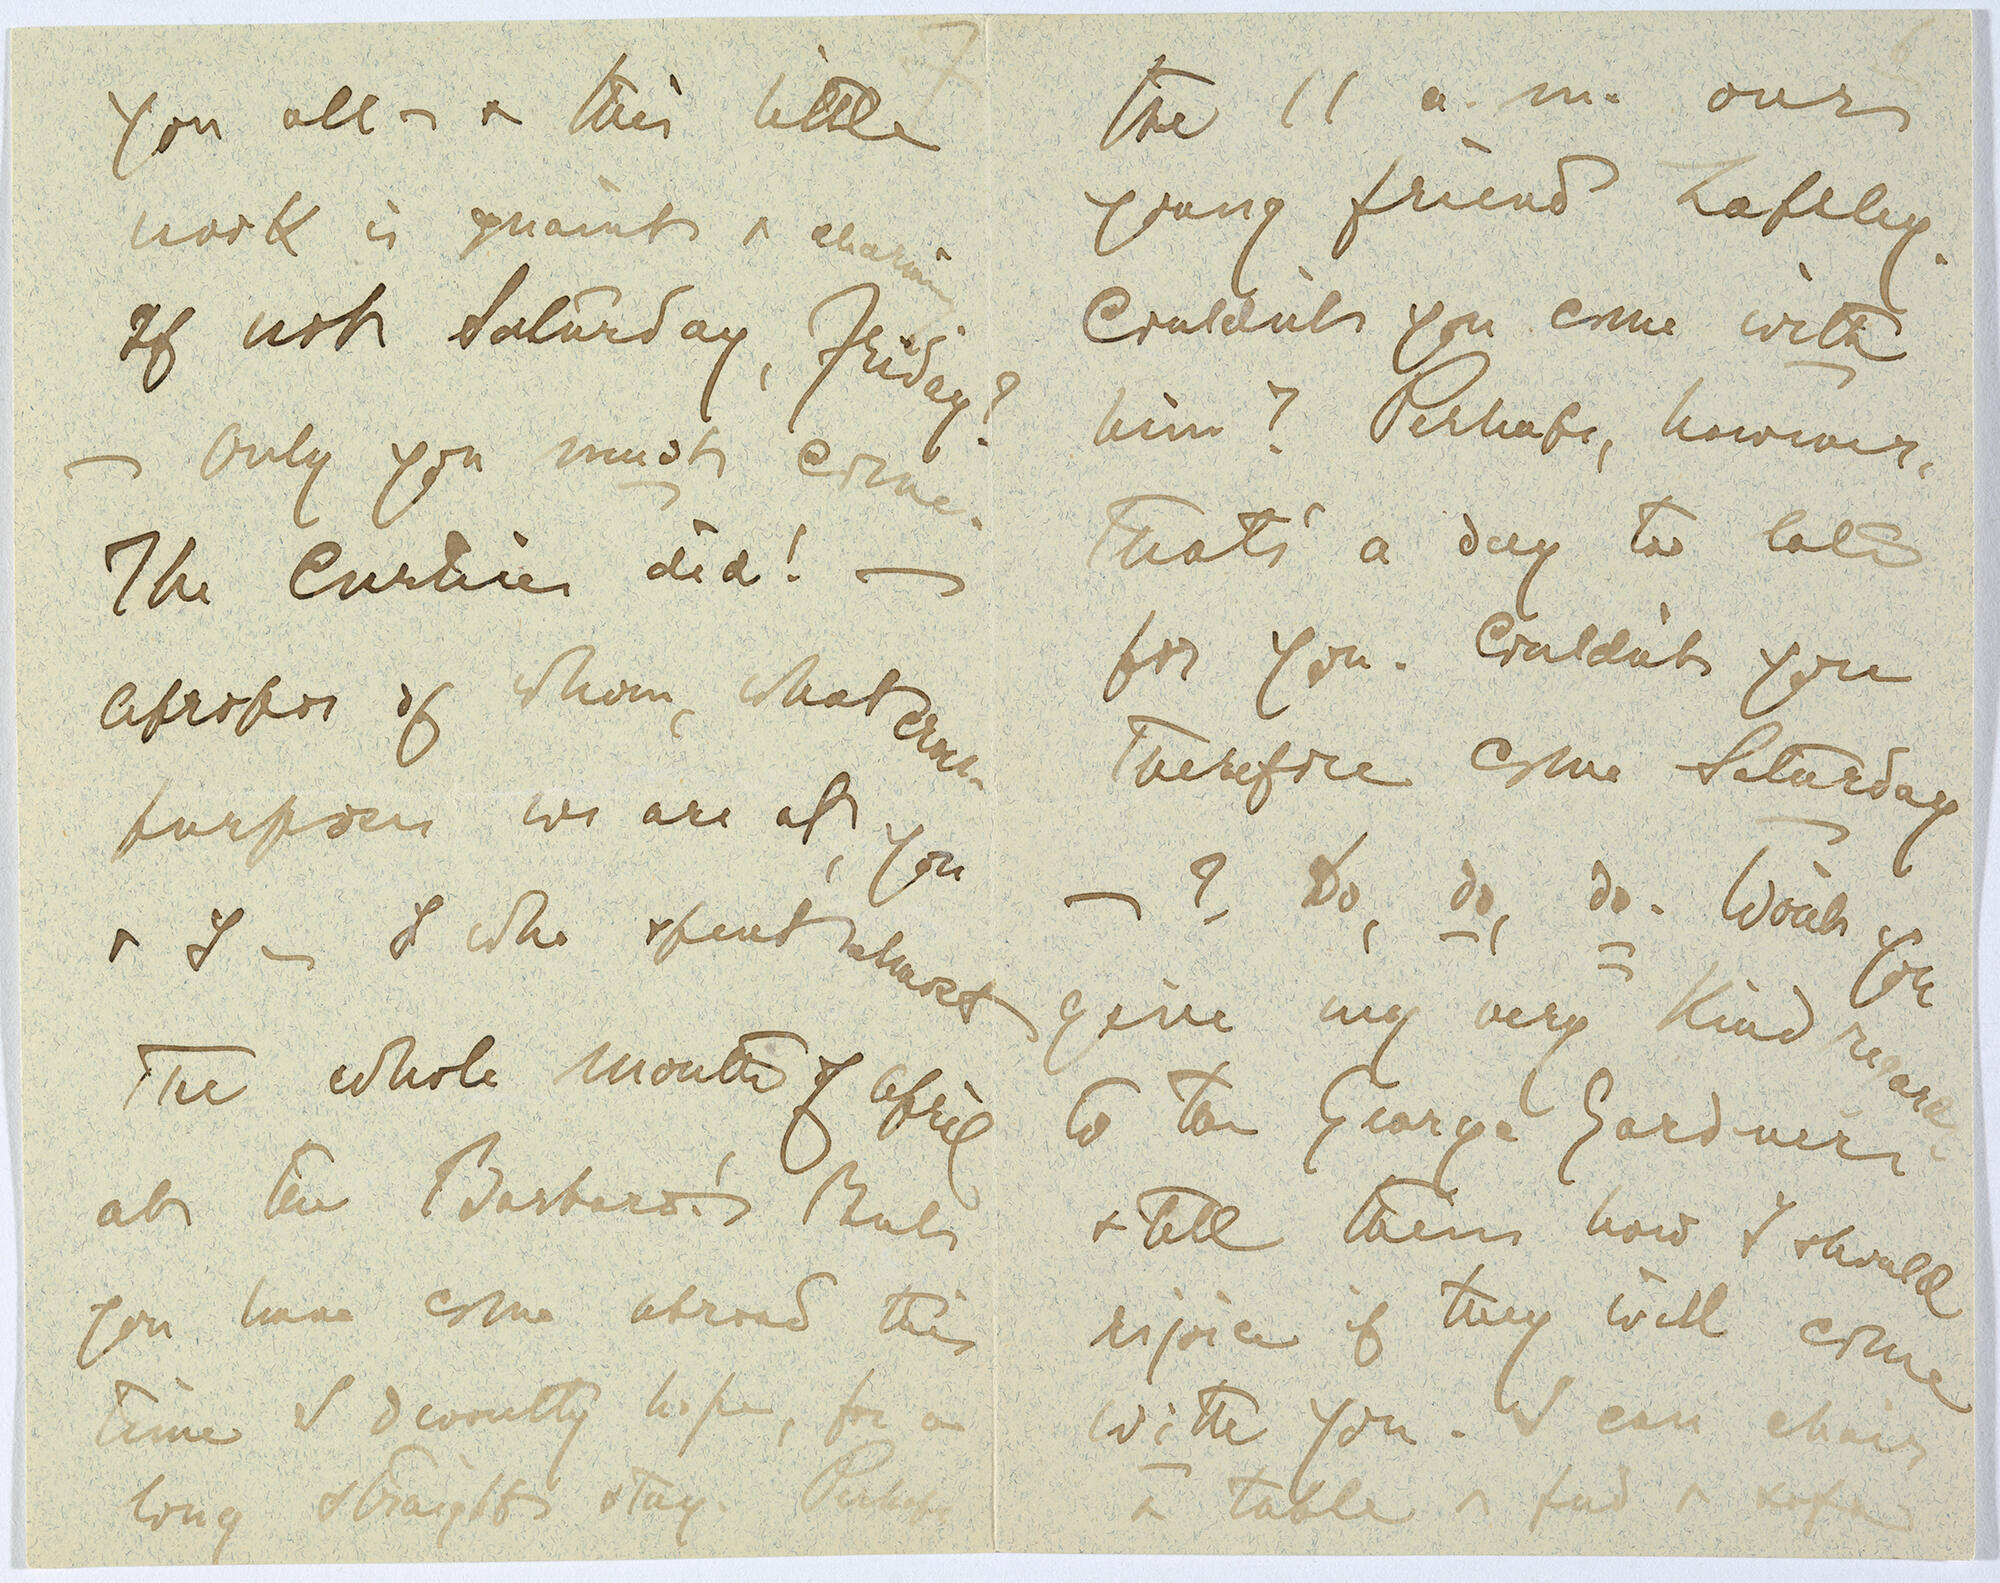 7
you all — & this little
nook is quaint & charming
If not Saturday, Friday?
— Only you must come.
The Curtises did! —
Apropos of whom, what cross-
purposes we are at, you
& I — I who spent almost
the whole month of April
at the Barbaro! — But
you have come abroad this
time I devoutly hope, for a
long straight stay. Perhaps
6
the 11 a.m. our
young friend Lapsley.
Couldn't you come with
him? Perhaps, however,
that's a day too late
for you. Couldn't you
therefore come Saturday
—? Do, do, do. Won't you
give my very kind regards
to the George Gardners
& tell them how I should
rejoice if they will come
with you. I can chair
& table & & sofa